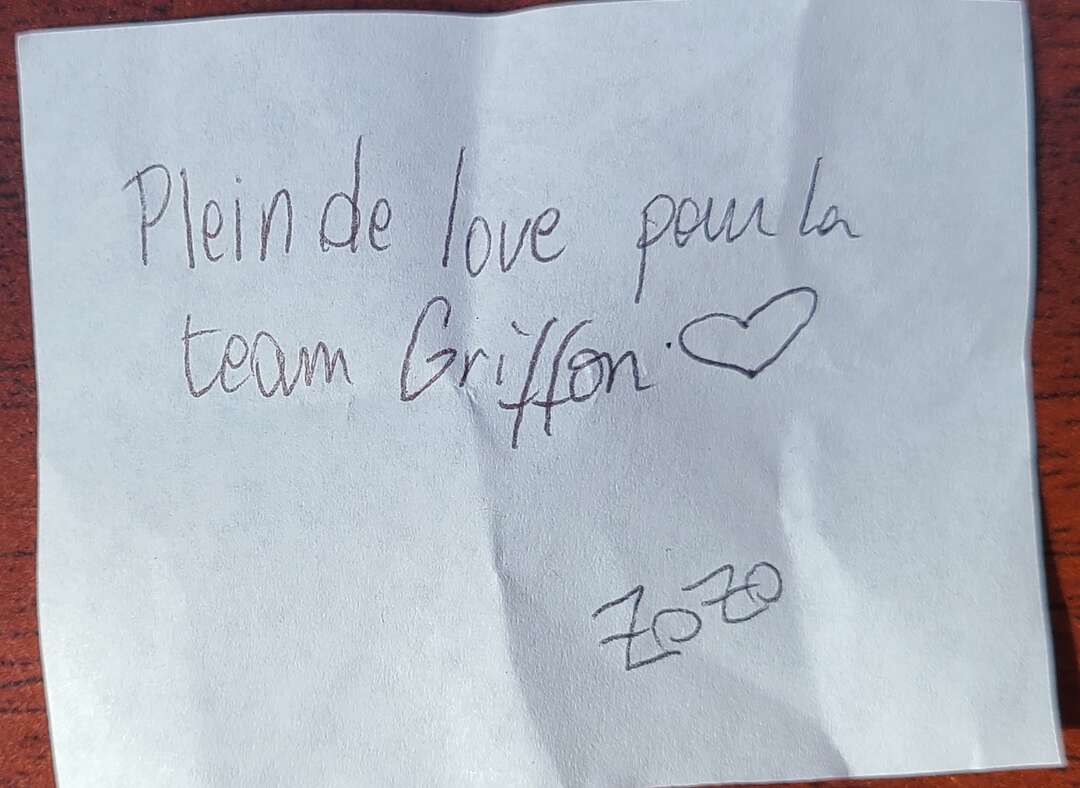 Plein de love pour la
team Griffon. ♡
ZoZo